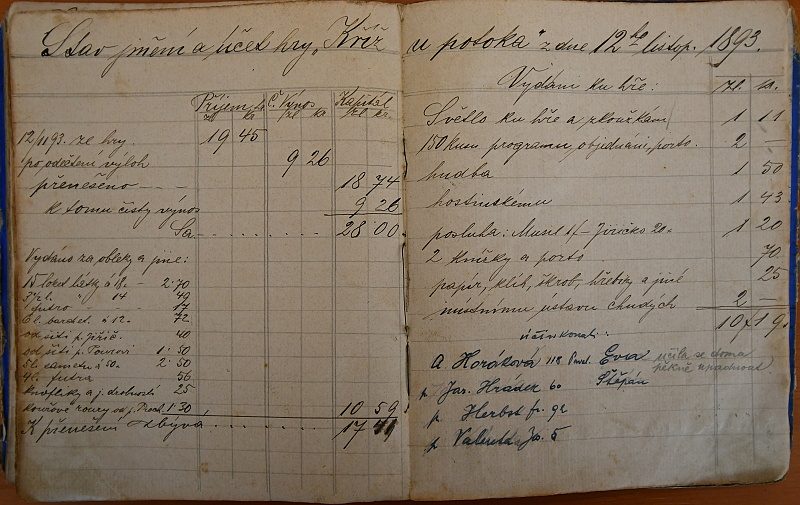 Stav jmění a účet hry „Kříž u potoka" z dne 12ho listop. 1893.
Příjem Č. Výnos Kapitál
zl kr zl kr zl kr.
12/11 93. ze hry 19 45
po odečtení výloh 9 26
přenešeno - - - 18 74
k tomu čistý výnos 9 26
Sa. 28 00.
Vydáno za obleky a jiné:
15 loket látky á 18. - 2·70
14 49
futro - 17
6 l. á 12. - 72
od šití p. 40
od šití p. 1·50
5 l. sametu á 50. - 2·50
4 l. futra 56
knoflíky a j. drobnosti 25
kouřové roury od j. 1·30 10 59
K přenešení zbývá 17 41
Vydání ku hře: zl. kr.
Světlo ku hře a zkouškám 1 11
150 kum. programu, objednání, porto. 2 —
hudba 1 50
hostinskému 1 43
posluha: Musel 1/- Jiřičko 20. - 1 20
2 knížky a porto 70
papír, klih, škrob, hřebíky a jiné 25
místnímu ústavu chudých 2 —
10 19
účinkovali:
A Horáková 118 Eva učila se doma pěkně upadnout
p. Jos. Hrádek 60 Štěpán
p. Herbst fr. 92
p. Valenta Jo. 5